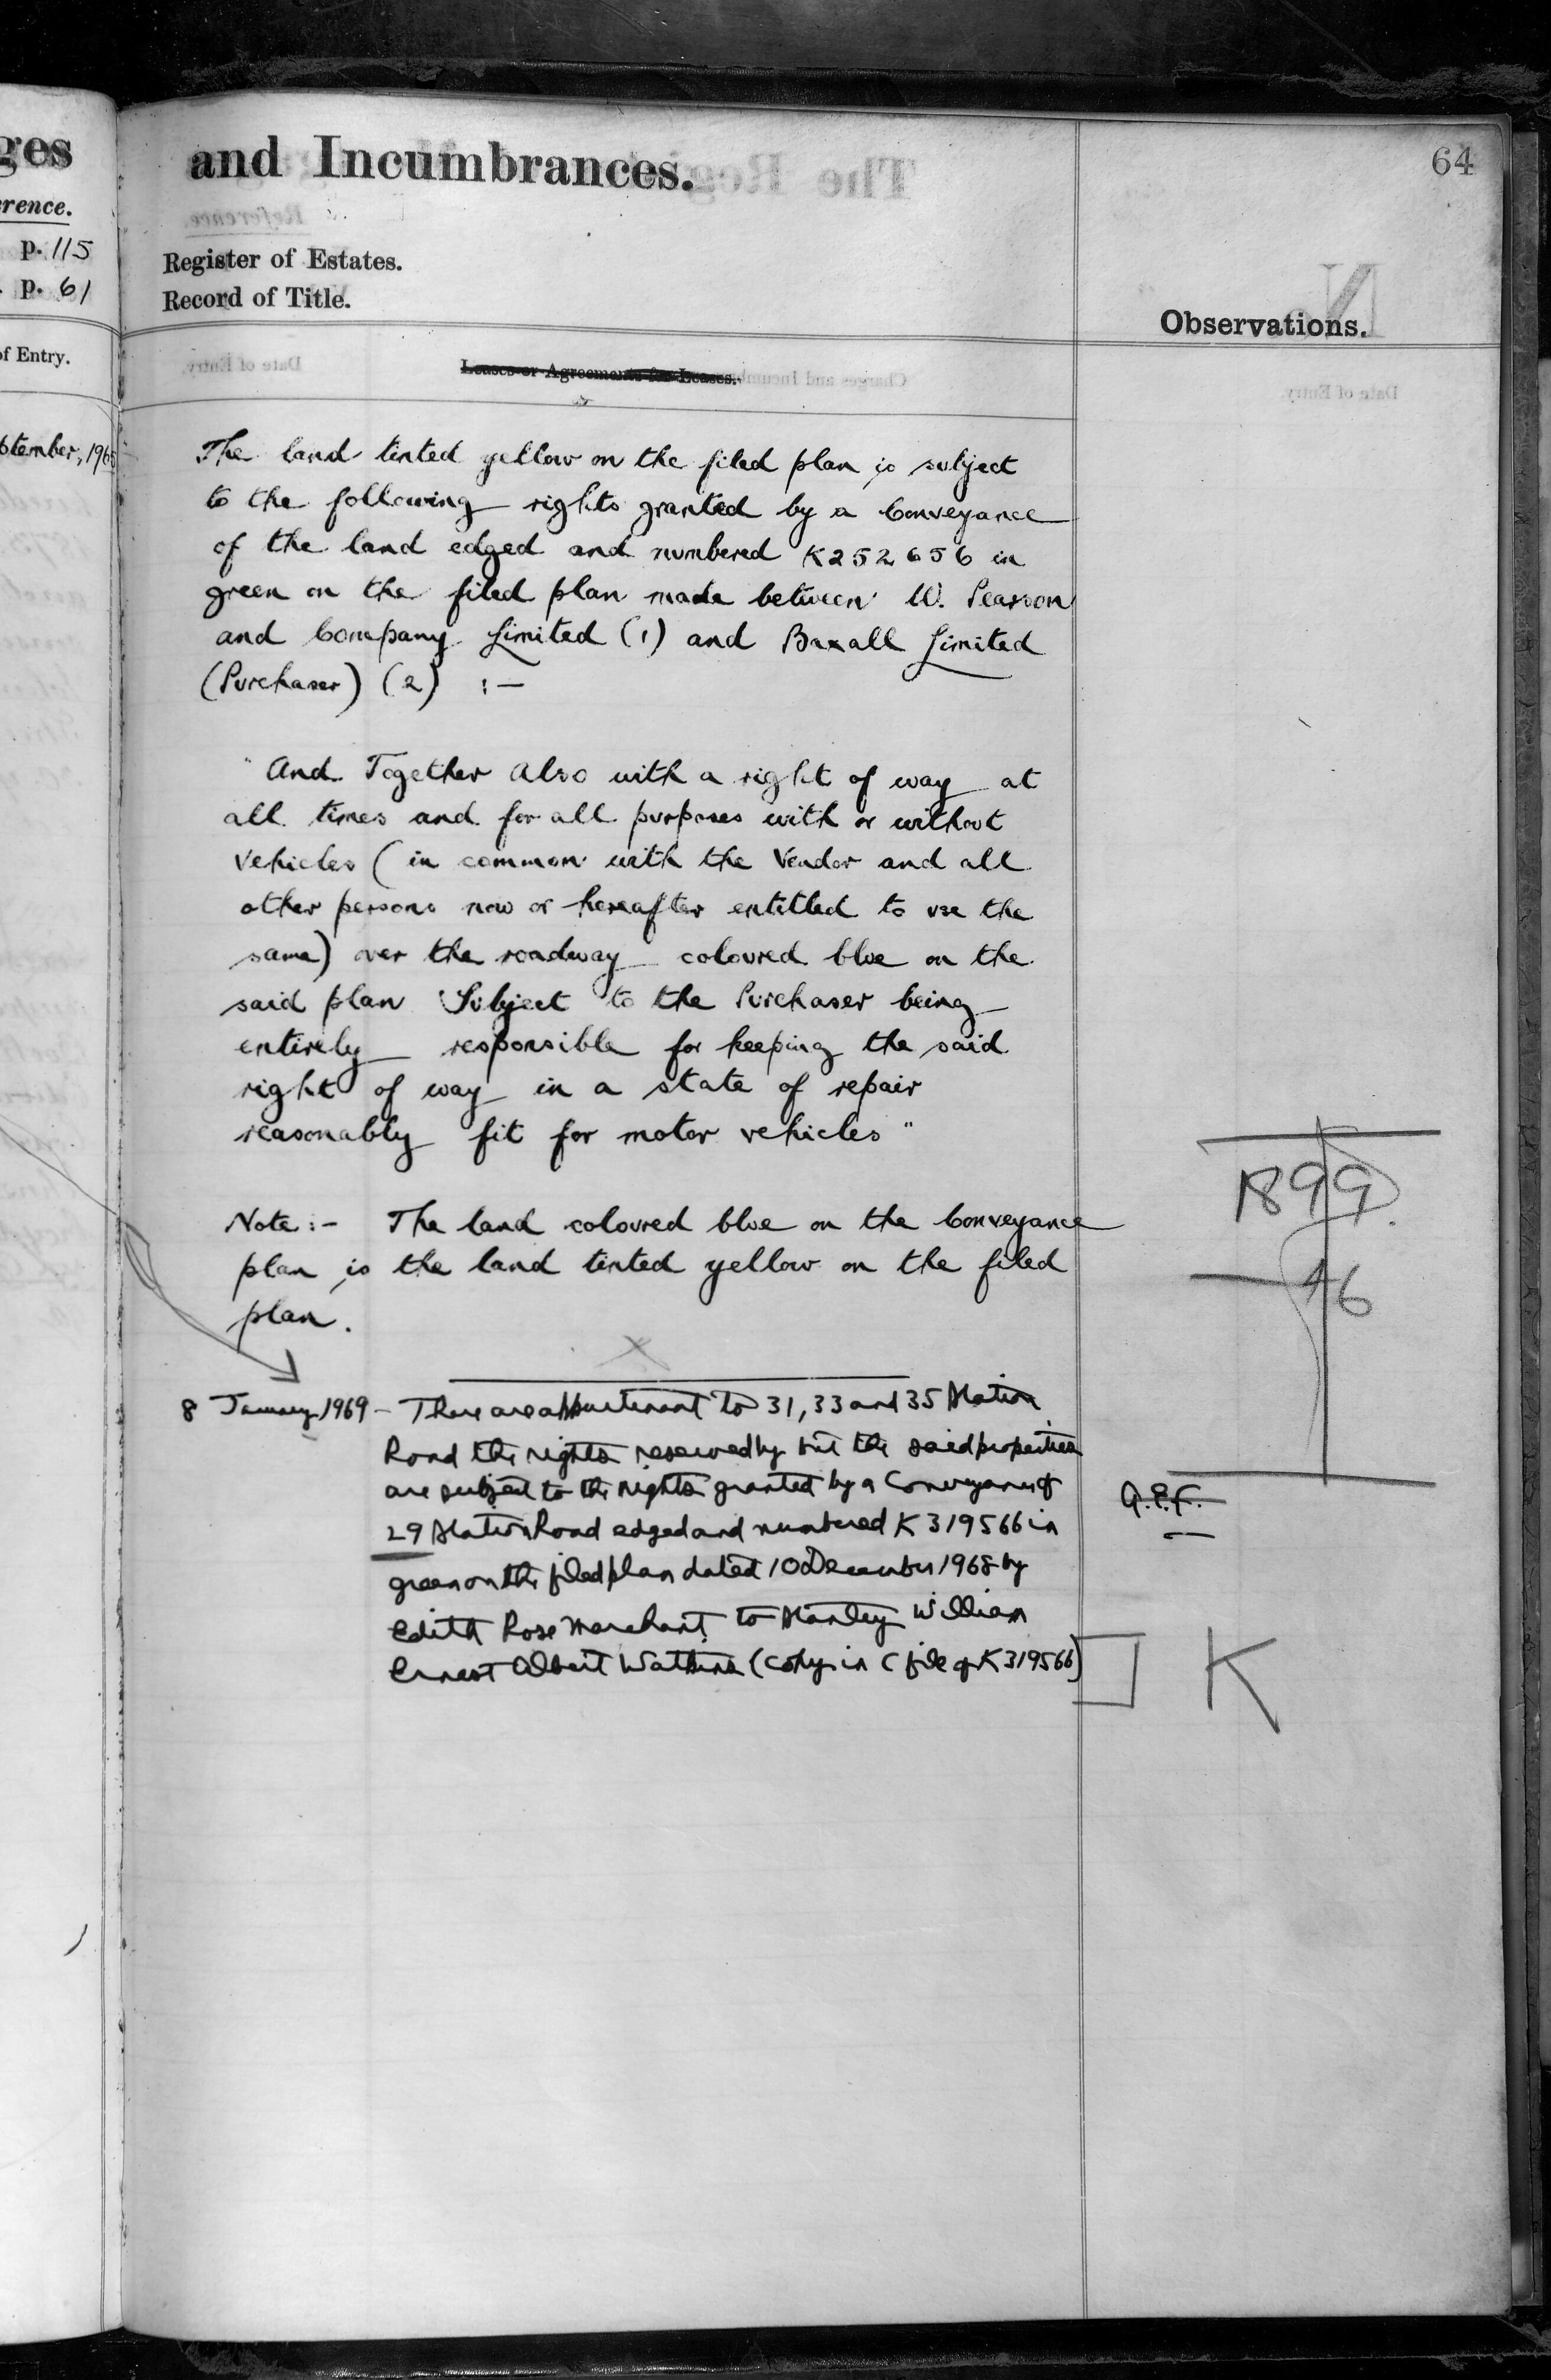 ges
and Incumbrances.
64
rence.
p. 115
p. 61
Register of Estates.
Record of Title.
Observations.
of Entry.
Leases or Agreements for Leases.
ptember, 196
The land tinted yellow on the filed plan is subject
to the following rights granted by a Conveyance
of the land edged and numbered K252656 in
green on the filed plan made between W. Pearson
and Company Limited (1) and Baxall Limited
(Purchaser) (2) :—
"And Together Also with a right of way at
all times and for all purposes with or without
vehicles (in common with the Vendor and all
other persons now or hereafter entitled to use the
same) over the roadway coloured blue on the
said plan Subject to the Purchaser being
entirely responsible for keeping the said
right of way in a state of repair
reasonably fit for motor vehicles"
Note :- The land coloured blue on the Conveyance
plan is the land tinted yellow on the filed
plan.
1899
16
8 January 1969 - There are appurtenant to 31, 33 and 35 Station
Road the rights reserved by but the said properties
are subject to the rights granted by a Conveyance of
29 Station Road edged and numbered K 319566 in
green on the filed plan dated 10 December 1968 by
Edith Rose Marchant to Stanley William
Ernest Albert Watkins (Copy in C file of K319566)
K